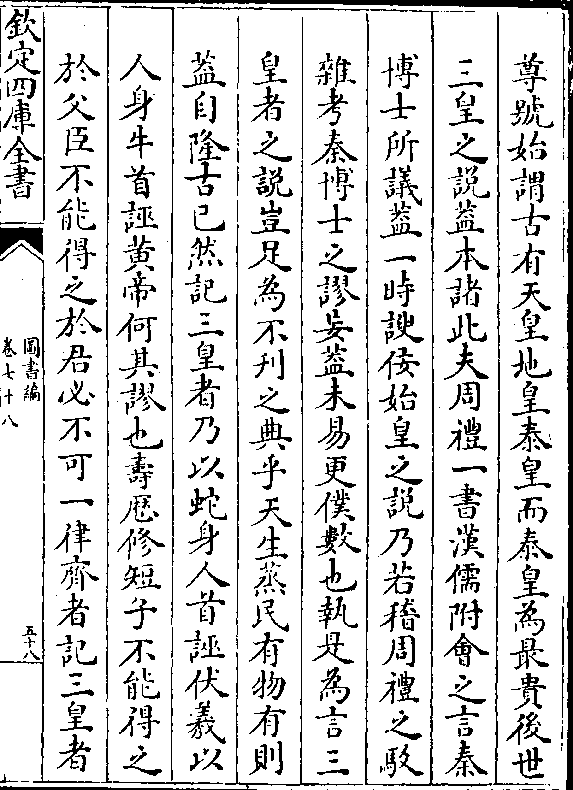 尊號始謂古有天皇地皇泰皇而泰皇為最貴後世
三皇之說葢本諸此夫周禮一書漢儒附會之言秦
博士所議葢一時諛佞始皇之說乃若稽周禮之駁
雜考秦博士之謬妄葢未易更僕數也執是為言三
皇者之說豈足為不刋之典乎天生蒸民有物有則
葢自隆古已然記三皇者乃以蛇身人首誣伏羲以
人身牛首誣黃帝何其謬也壽厯修短子不能得之
於父臣不能得之於君必不可一律齊者記三皇者
欽定四庫全書
圖書編
卷七十八
五十八